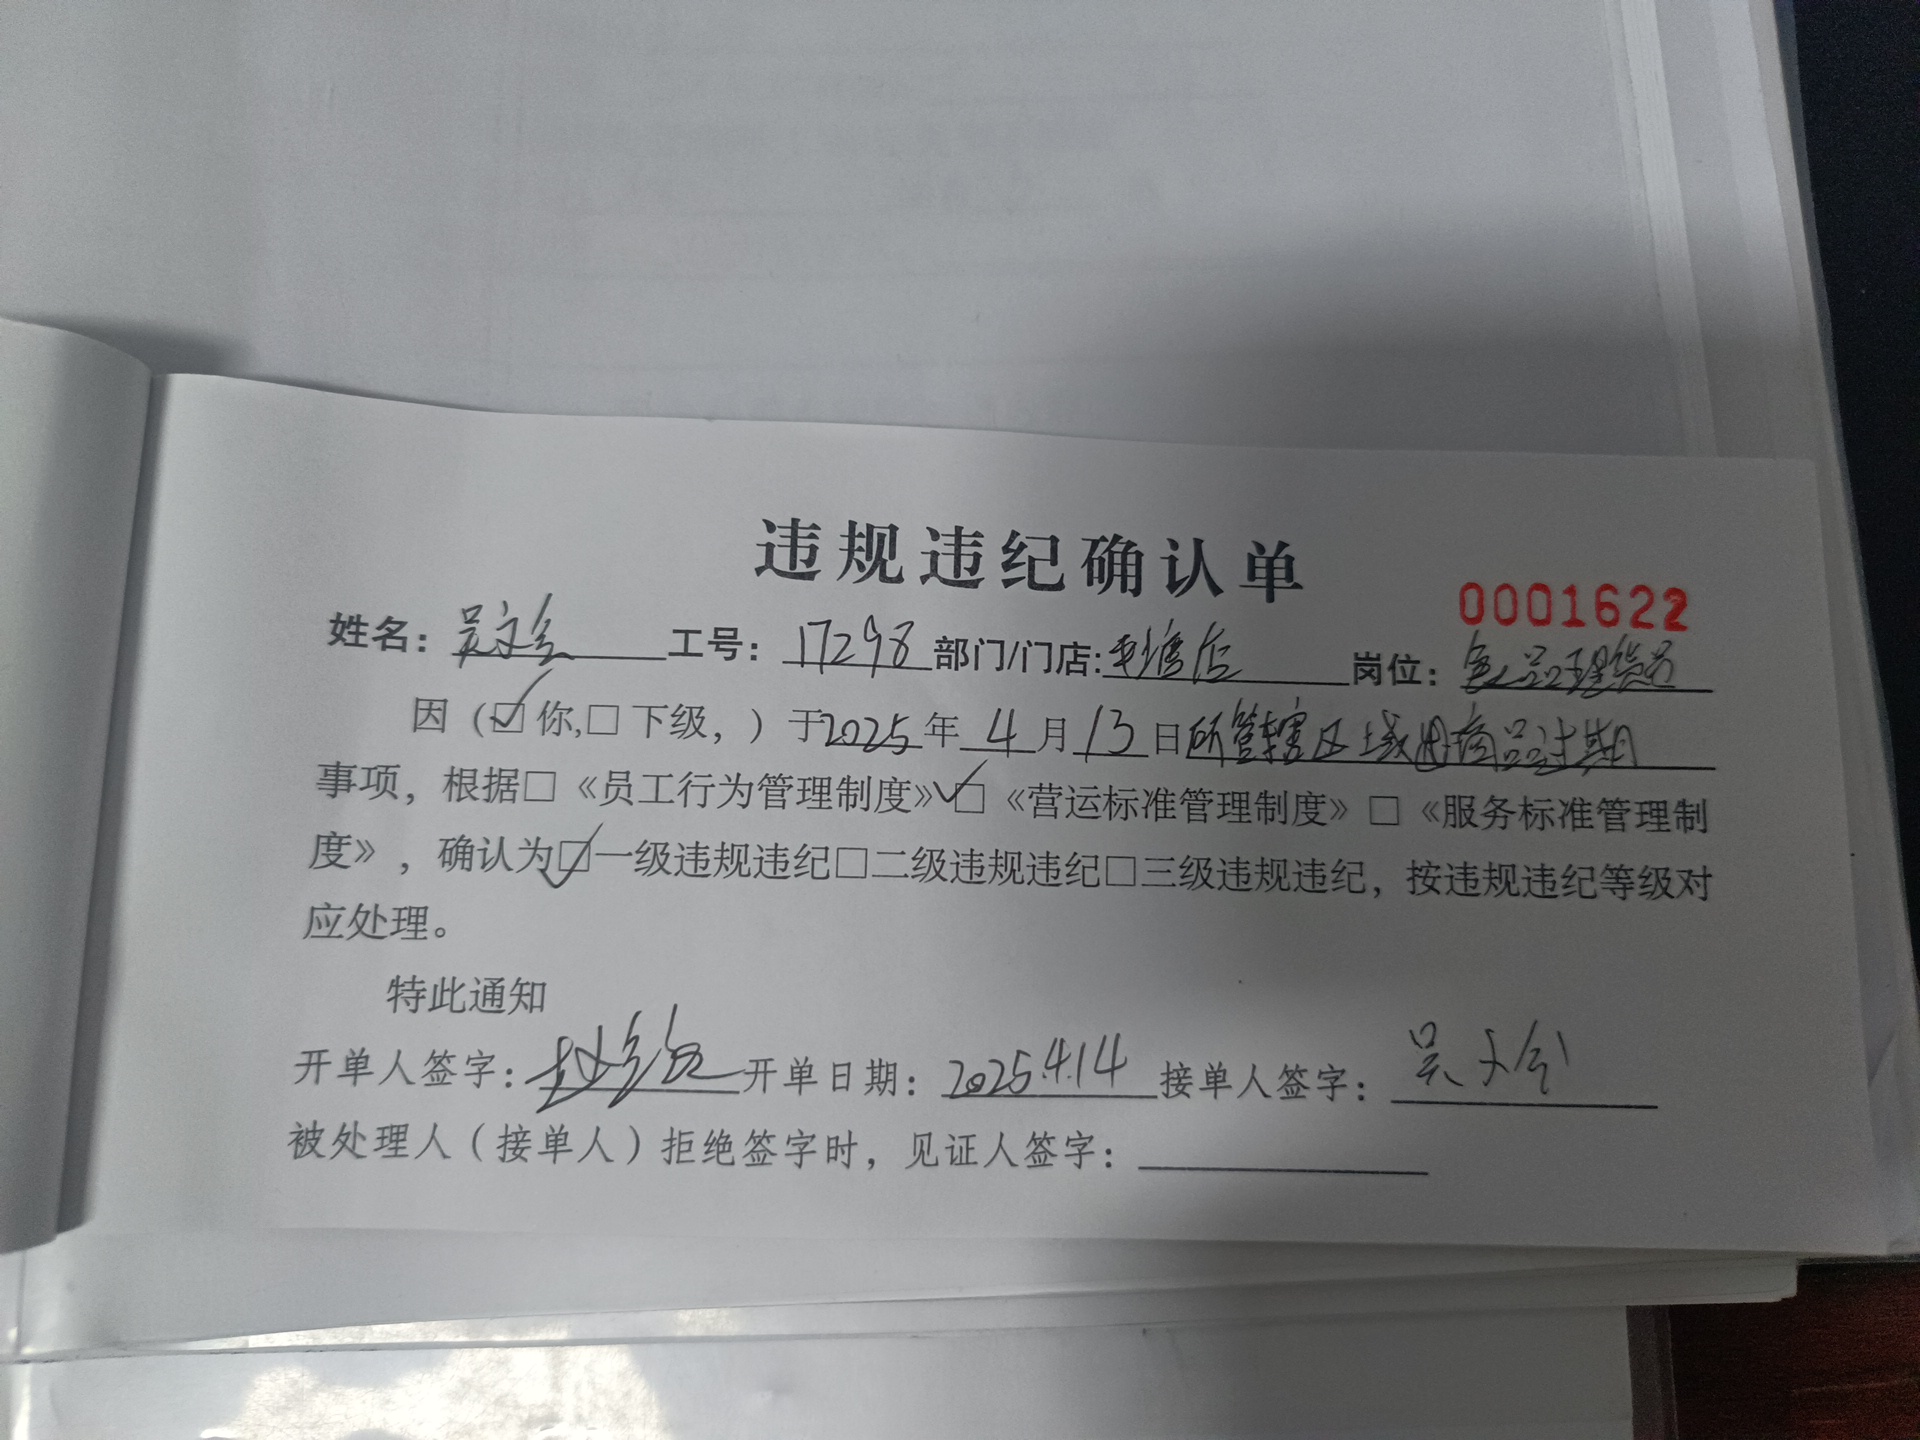 违规违纪确认单
0001622
姓名：吴文会 工号：17298 部门/门店: 店 岗位：食品理货员
因（☑你,□下级，）于2025年4月13日所管辖区域内商品过期
事项，根据□《员工行为管理制度》☑《营运标准管理制度》□《服务标准管理制
度》，确认为☑一级违规违纪□二级违规违纪□三级违规违纪，按违规违纪等级对
应处理。
特此通知
开单人签字： 开单日期：2025.4.14 接单人签字：吴文会
被处理人（接单人）拒绝签字时，见证人签字：